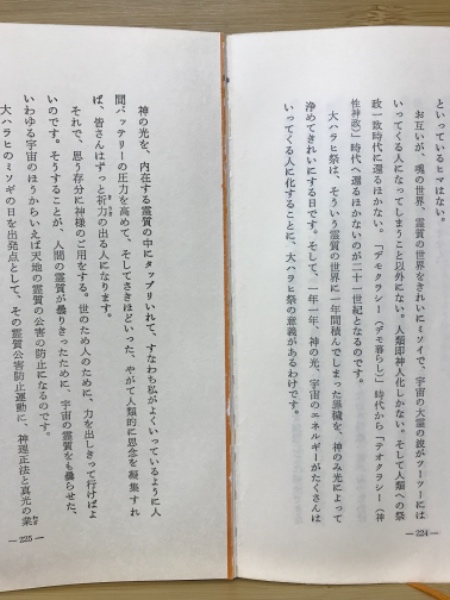 といっているヒマはない。
お互いが、魂の世界、霊質の世界をきれいにミソイで、宇宙の大霊の波がツーツーには
いってくる人になってしまうこと以外にない。人類即神人化しかない。そして人類への祭
政一致時代に還るほかない。「デモクラシー（デモ暮らし）」時代から「テオクラシー（神
性神政）」時代へ還るほかないのが二十一世紀となるのです。
大ハラヒ祭は、そういう霊質の世界に一年間積んでしまった罪穢を、神のみ光によって
浄めてきれいにする日です。そして、一年一年、神の光、宇宙のエネルギーがたくさんは
いってくる人に化することに、大ハラヒ祭の意義があるわけです。
—224—
神の光を、内在する霊質の中にタップリいれて、すなわち私がよくいっているように人
間バッテリーの圧力を高めて、そしてさきほどいった、やがて人類的に思念を凝集すれ
ば、皆さんはずっと祈力の出る人になります。
それで、思う存分に神様のご用をする。世のため人のために、力を出しきって行けばよ
いのです。そうすることが、人間の霊質が曇りきったために、宇宙の霊質をも曇らせた、
いわゆる宇宙のほうからいえば天地の霊質の公害の防止になるのです。
大ハラヒのミソギの日を出発点として、その霊質公害防止運動に、神理正法と真光の業
—225—